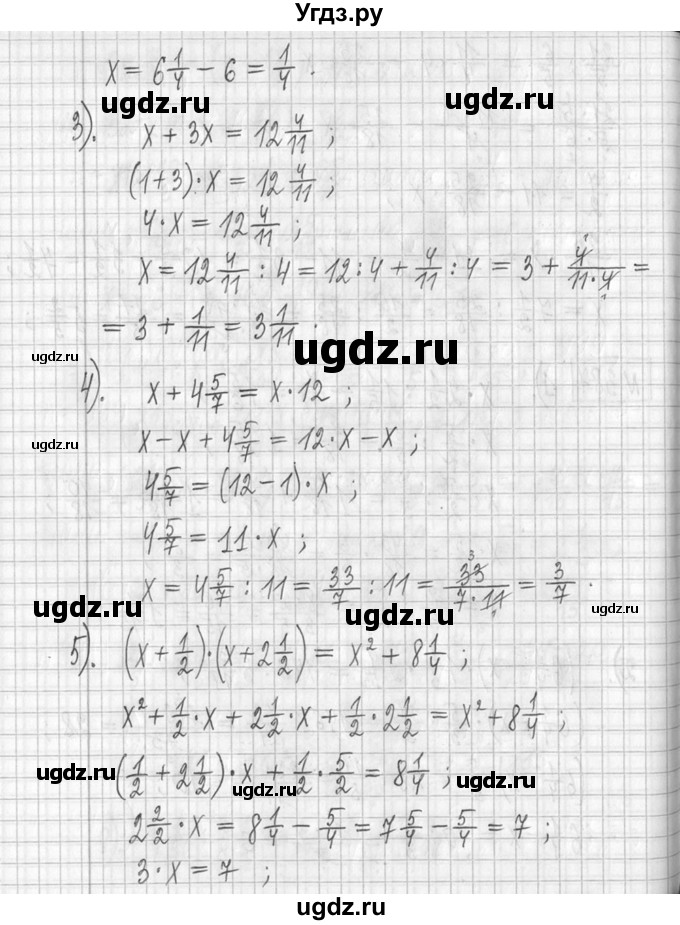 Угдз.ру
x = 6 1/4 − 6 = 1/4 .
ugdz.ru ugdz.ru
3). x + 3x = 12 4/11 ;
(1+3)·x = 12 4/11 ;
4·x = 12 4/11 ;
x = 12 4/11 : 4 = 12:4 + 4/11 : 4 = 3 + 4/(11·4) =
1 1
= 3 + 1/11 = 3 1/11 .
ugdz.ru ugdz.ru
4). x + 4 5/7 = x·12 ;
x − x + 4 5/7 = 12·x − x ;
ugdz.ru ugdz.ru
4 5/7 = (12−1)·x ;
4 5/7 = 11·x ;
x = 4 5/7 : 11 = 33/7 : 11 = 33/(7·11) = 3/7 .
3 1
ugdz.ru ugdz.ru ugdz.ru
5). (x + 1/2)·(x + 2 1/2) = x² + 8 1/4 ;
x² + 1/2·x + 2 1/2·x + 1/2·2 1/2 = x² + 8 1/4 ;
(1/2 + 2 1/2)·x + 1/2·5/2 = 8 1/4 ;
ugdz.ru ugdz.ru ugdz.ru
2 2/2·x = 8 1/4 − 5/4 = 7 5/4 − 5/4 = 7 ;
3·x = 7 ;
ugdz.ru